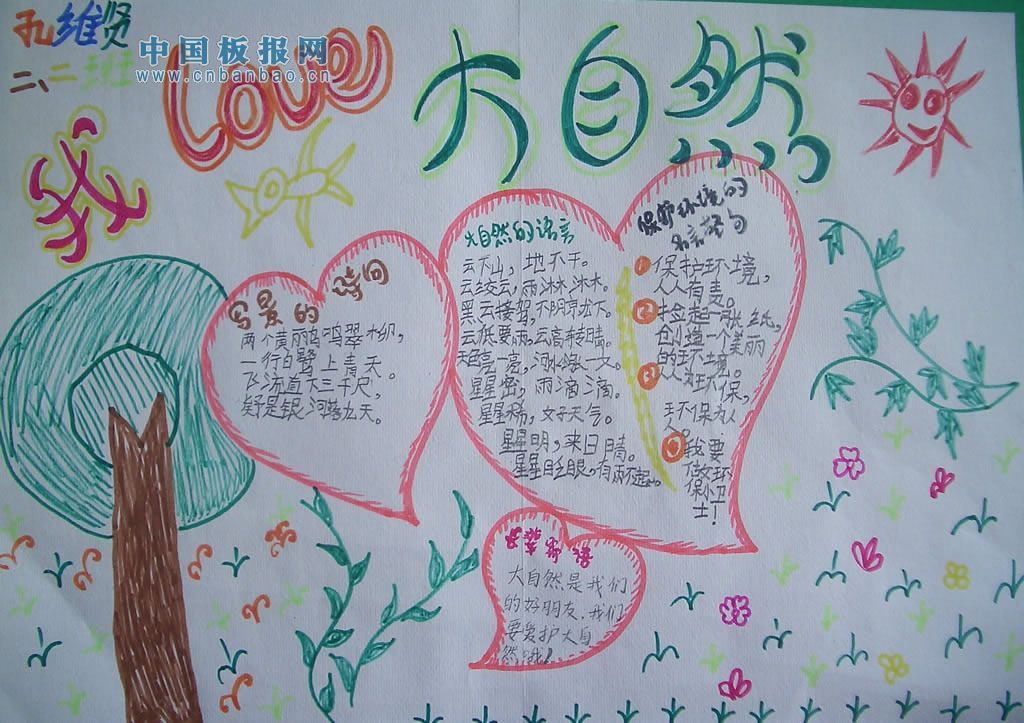 孔维贤
二、二班
中国板报网
www.cnbanbao.cn
我
Love
大自然
写景的诗句
两个黄丽鸣翠柳,
一行白鹭上青天。
飞流直下三千尺,
疑是银河落九天。
大自然的语言
云下山,地不干。
云绞云,雨淋淋。
黑云接驾,不阴就下。
云低要雨,云高转晴。
星星密,雨滴滴。
星星稀,好天气。
星星明,来日晴。
星星眨眼,有雨不起。
保护环境的
名言警句
1 保护环境,
人人有责。
2 捡起一张纸,
创造一个美丽
的环境。
3 人人为环保,
环保为人
人。
4 我要
做环
保小卫
士!
大自然是我们
的好朋友,我们
要爱护大自
然哦!